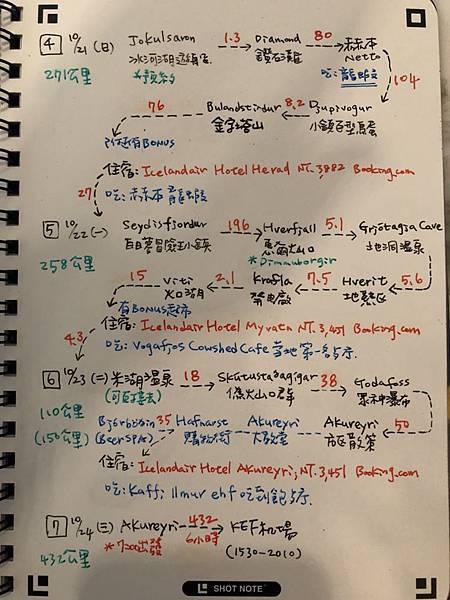 4 10/21 (日) Jokulsaron 1.3 Diamond 80 赫本
冰河湖 鑽石沙灘 Netto
271公里 *預約 吃:龍蝦 104
76 Bulandstindur 8.2 Djupivogur
金字塔山 小鎮 巨型鳥蛋
有BONUS
住宿:Icelandair Hotel Herad NT.3,882 Booking.com
27 吃:赫本龍蝦
5 10/22 (一) Seydisfjordur 196 Hverfjall 5.1 Grjotagja Cave
白日夢冒險王小鎮 火山口 地洞溫泉
258公里 *Dimmuborgir
15 Viti 2.1 Krafla 7.5 Hverit 5.6
火口湖 發電廠 地熱區
有BONUS超市
4.3 住宿:Icelandair Hotel Myvatn NT.3,451 Booking.com
吃:Vogafjos Cowshed Cafe 當地第一名餐廳
6 10/23 (二) 米湖溫泉 18 Skutustadagigar 38 Godafoss
(可直接去) 偽火山口群 眾神瀑布
110公里
(150公里) Bjorbodin 35 Hafnarst Akureyri Akureyri 50
(Beer Spa) 購物街 大教堂 市區散策
住宿:Icelandair Hotel Akureyri, NT.3,451 Booking.com
吃:Kaffi Ilmur ehf 吃到飽餐廳
7 10/24 (三) Akureyri 432 KEF机場
*7:00出發 6小時 (1530-2010)
432公里
SHOT NOTE